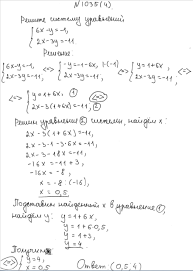 №1035(4)
Решите систему уравнений
{6x-y=-1,
2x-3y=-11
Решение:
{6x-y=-1, <=> {-y=-1-6x, |·(-1) <=> {y=1+6x, <=>
2x-3y=-11, 2x-3y=-11, 2x-3y=-11,
<=> {y=1+6x, ①
2x-3(1+6x)=-11, ②
Решим уравнение ② системы, найдём x:
2x-3(1+6x)=-11,
2x-3·1-3·6x=-11,
2x-3-18x=-11,
-16x=-11+3,
-16x=-8,
x=-8:(-16),
x=0,5.
Подставим найденный x в уравнение ①,
найдём y: y=1+6x,
y=1+6·0,5,
y=1+3,
y=4.
Получим
<=> {y=4,
x=0,5 Ответ (0,5;4)